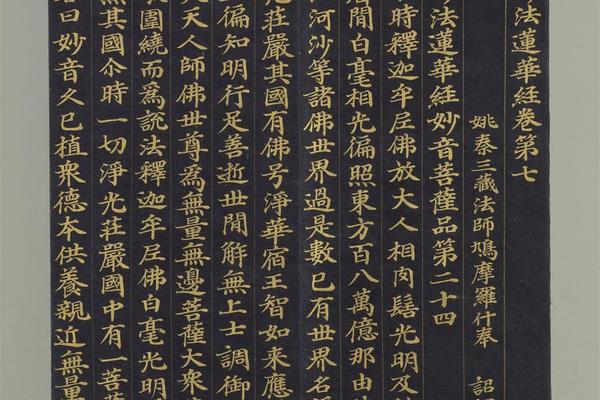 法蓮華經卷第七
姚秦三藏法師鳩摩羅什奉 詔
法蓮華經妙音菩薩品第二十四
時釋迦牟尼佛放大人相肉髻光明及
間白毫相光徧照東方百八萬億那由
河沙等諸佛世界過是數已有世界名
莊嚴其國有佛号淨華宿王智如来應
徧知明行足善逝世間解無上士調御
天人師佛世尊為無量無邊菩薩大衆
圍繞而為說法釋迦牟尼佛白毫光明
其國尒時一切淨光莊嚴國中有一菩
曰妙音久已植衆德本供養親近無量